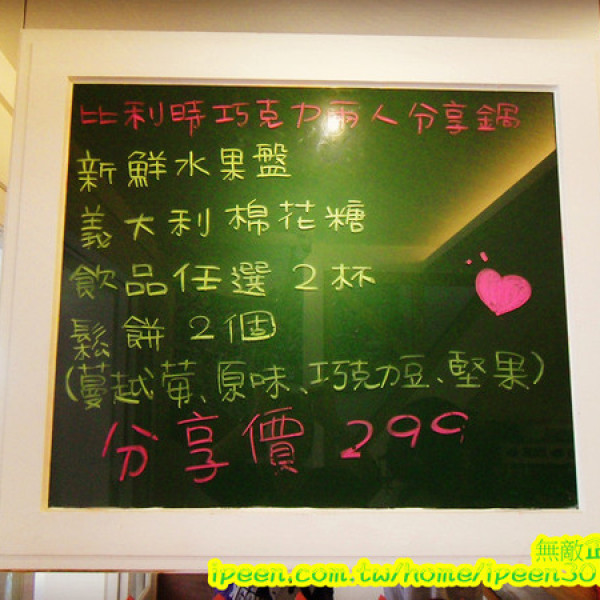 比利時巧克力兩人分享鍋
新鮮水果盤
義大利棉花糖
飲品任選2杯
鬆餅2個
(蔓越莓、原味、巧克力豆、堅果)
分享價299
無敵
ipeen.com.tw/home/ipeen30